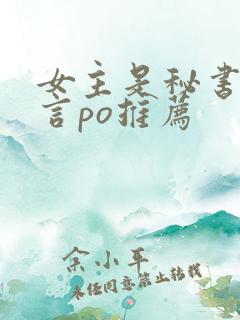 女主是秘书
言po推薦
余小平
未经同意禁止转载